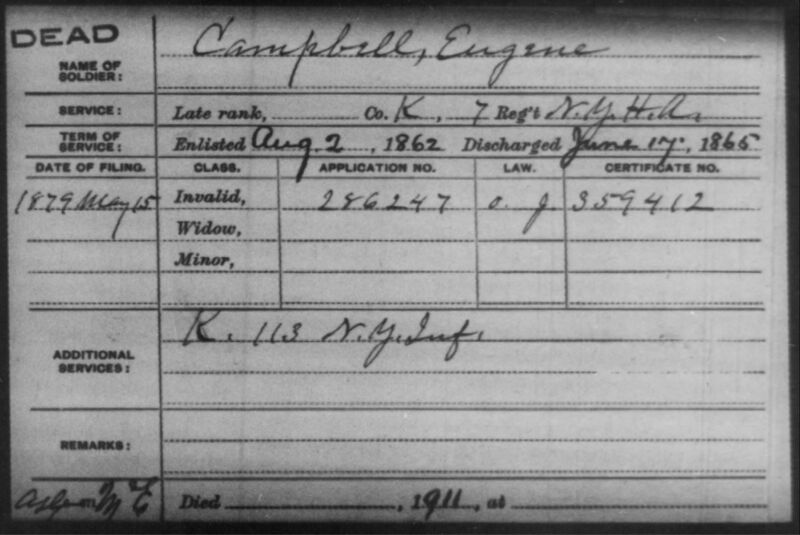 DEAD
NAME OF SOLDIER: Campbell, Eugene
SERVICE: Late rank, Co. K, 7 Reg't N.Y.H.A.
TERM OF SERVICE: Enlisted Aug. 2, 1862 Discharged June 17, 1865
DATE OF FILING. CLASS. APPLICATION NO. LAW. CERTIFICATE NO.
1879 May 15 Invalid, 286247 O. J. 359412
Widow,
Minor,
ADDITIONAL SERVICES: K. 113 N.Y. Inf.
REMARKS:
Died , 1911, at